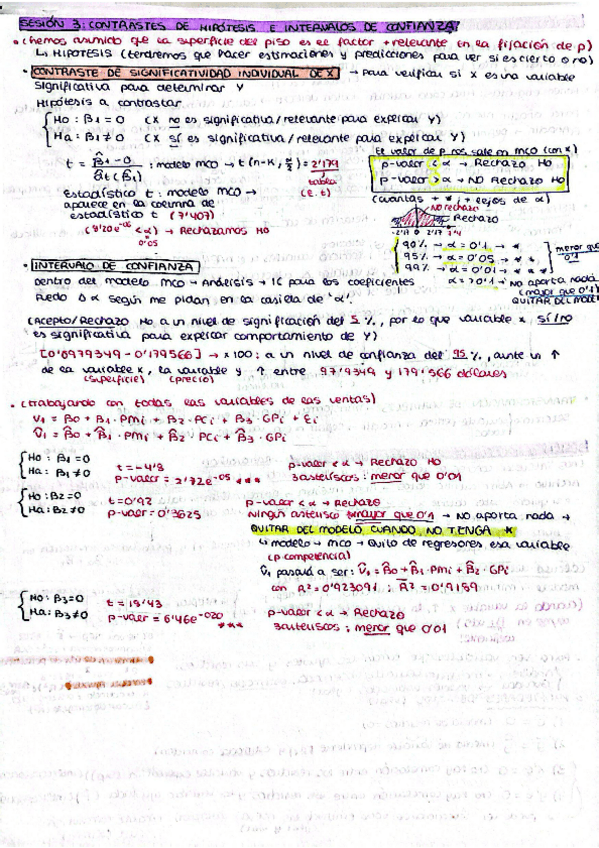 SESIÓN 3: CONTRASTES DE HIPÓTESIS E INTERVALOS DE CONFIANZA
• (hemos asumido que la superficie del piso es el factor + relevante en la fijación de p)
↳ HIPOTESIS (tendremos que hacer estimaciones y predicciones para ver si es cierto o no)
• CONTRASTE DE SIGNIFICATIVIDAD INDIVIDUAL DE X → para verificar si x es una variable
significativa para determinar Y
Hipótesis a contrastar
H0: β1 = 0 (X no es significativa/relevante para explicar Y)
Ha: β1 ≠ 0 (X sí es significativa/relevante para explicar Y)
El valor de p nos sale en MCO (con *)
t = β̂1 - 0 / σ̂t (β̂1) : modelo MCO → t (n-K, α/2) = 2'179
tabla (E.t)
p-valor < α → Rechazo H0
p-valor > α → NO Rechazo H0
Estadístico t: modelo MCO →
aparece en la columna de
estadístico t (7'407)
(8'20e-06 < α) → Rechazamos H0
0'05
(cuantas + *, + lejos de α)
No rechazo
Rechazo
90% → α = 0'1 → *
95% → α = 0'05 → * *
99% → α = 0'01 → * * *
α = > 0'1 → No aporta nada
menor que 0'1
(mayor que 0'1)
QUITAR DEL MODEL
• INTERVALO DE CONFIANZA
Dentro del modelo MCO → Análisis → IC para los coeficientes
Puedo Δ α según me pidan en la casilla de 'α'.
(Acepto/Rechazo H0 a un nivel de significación del 5 %, por lo que variable x sí/no
es significativa para explicar comportamiento de Y)
[0'0979349 - 0'179566] → x100: a un nivel de confianza del 95 %, ante un ↑
de la variable x, la variable y ↑ entre 97'9349 y 179'566 dólares
(superficie) (precio)
• (trabajando con todas las variables de las ventas)
V1 = β0 + β1 · PMi + β2 · PCi + β3 · GPi + Ei
V̂1 = β̂0 + β̂1 · PMi + β̂2 · PCi + β̂3 · GPi
H0: β1 = 0
Ha: β1 ≠ 0
t = -4'8
p-valor = 2'72e-05 * * *
p-valor < α → Rechazo H0
3 asteriscos: menor que 0'01
H0: β2=0
Ha: β2≠0
t=0'92
p-valor= 0'3625
p-valor < α → Rechazo
ningún asterisco: mayor que 0'1 → No aporta nada →
QUITAR DEL MODELO CUANDO NO TENGA *
↳ modelo → MCO → Quito de regresores esa variable
(p.competencia)
V̂1 pasaría a ser: V̂1 = β̂0 + β̂1 · PMi + β̂2 · GPi
con R² = 0'923091 ; R̄² = 0'9159
H0: β3=0
Ha: β3≠0
t = 15'43
p-valor = 6'46e-020
* * *
p-valor < α → Rechazo
3 asteriscos: menor que 0'01